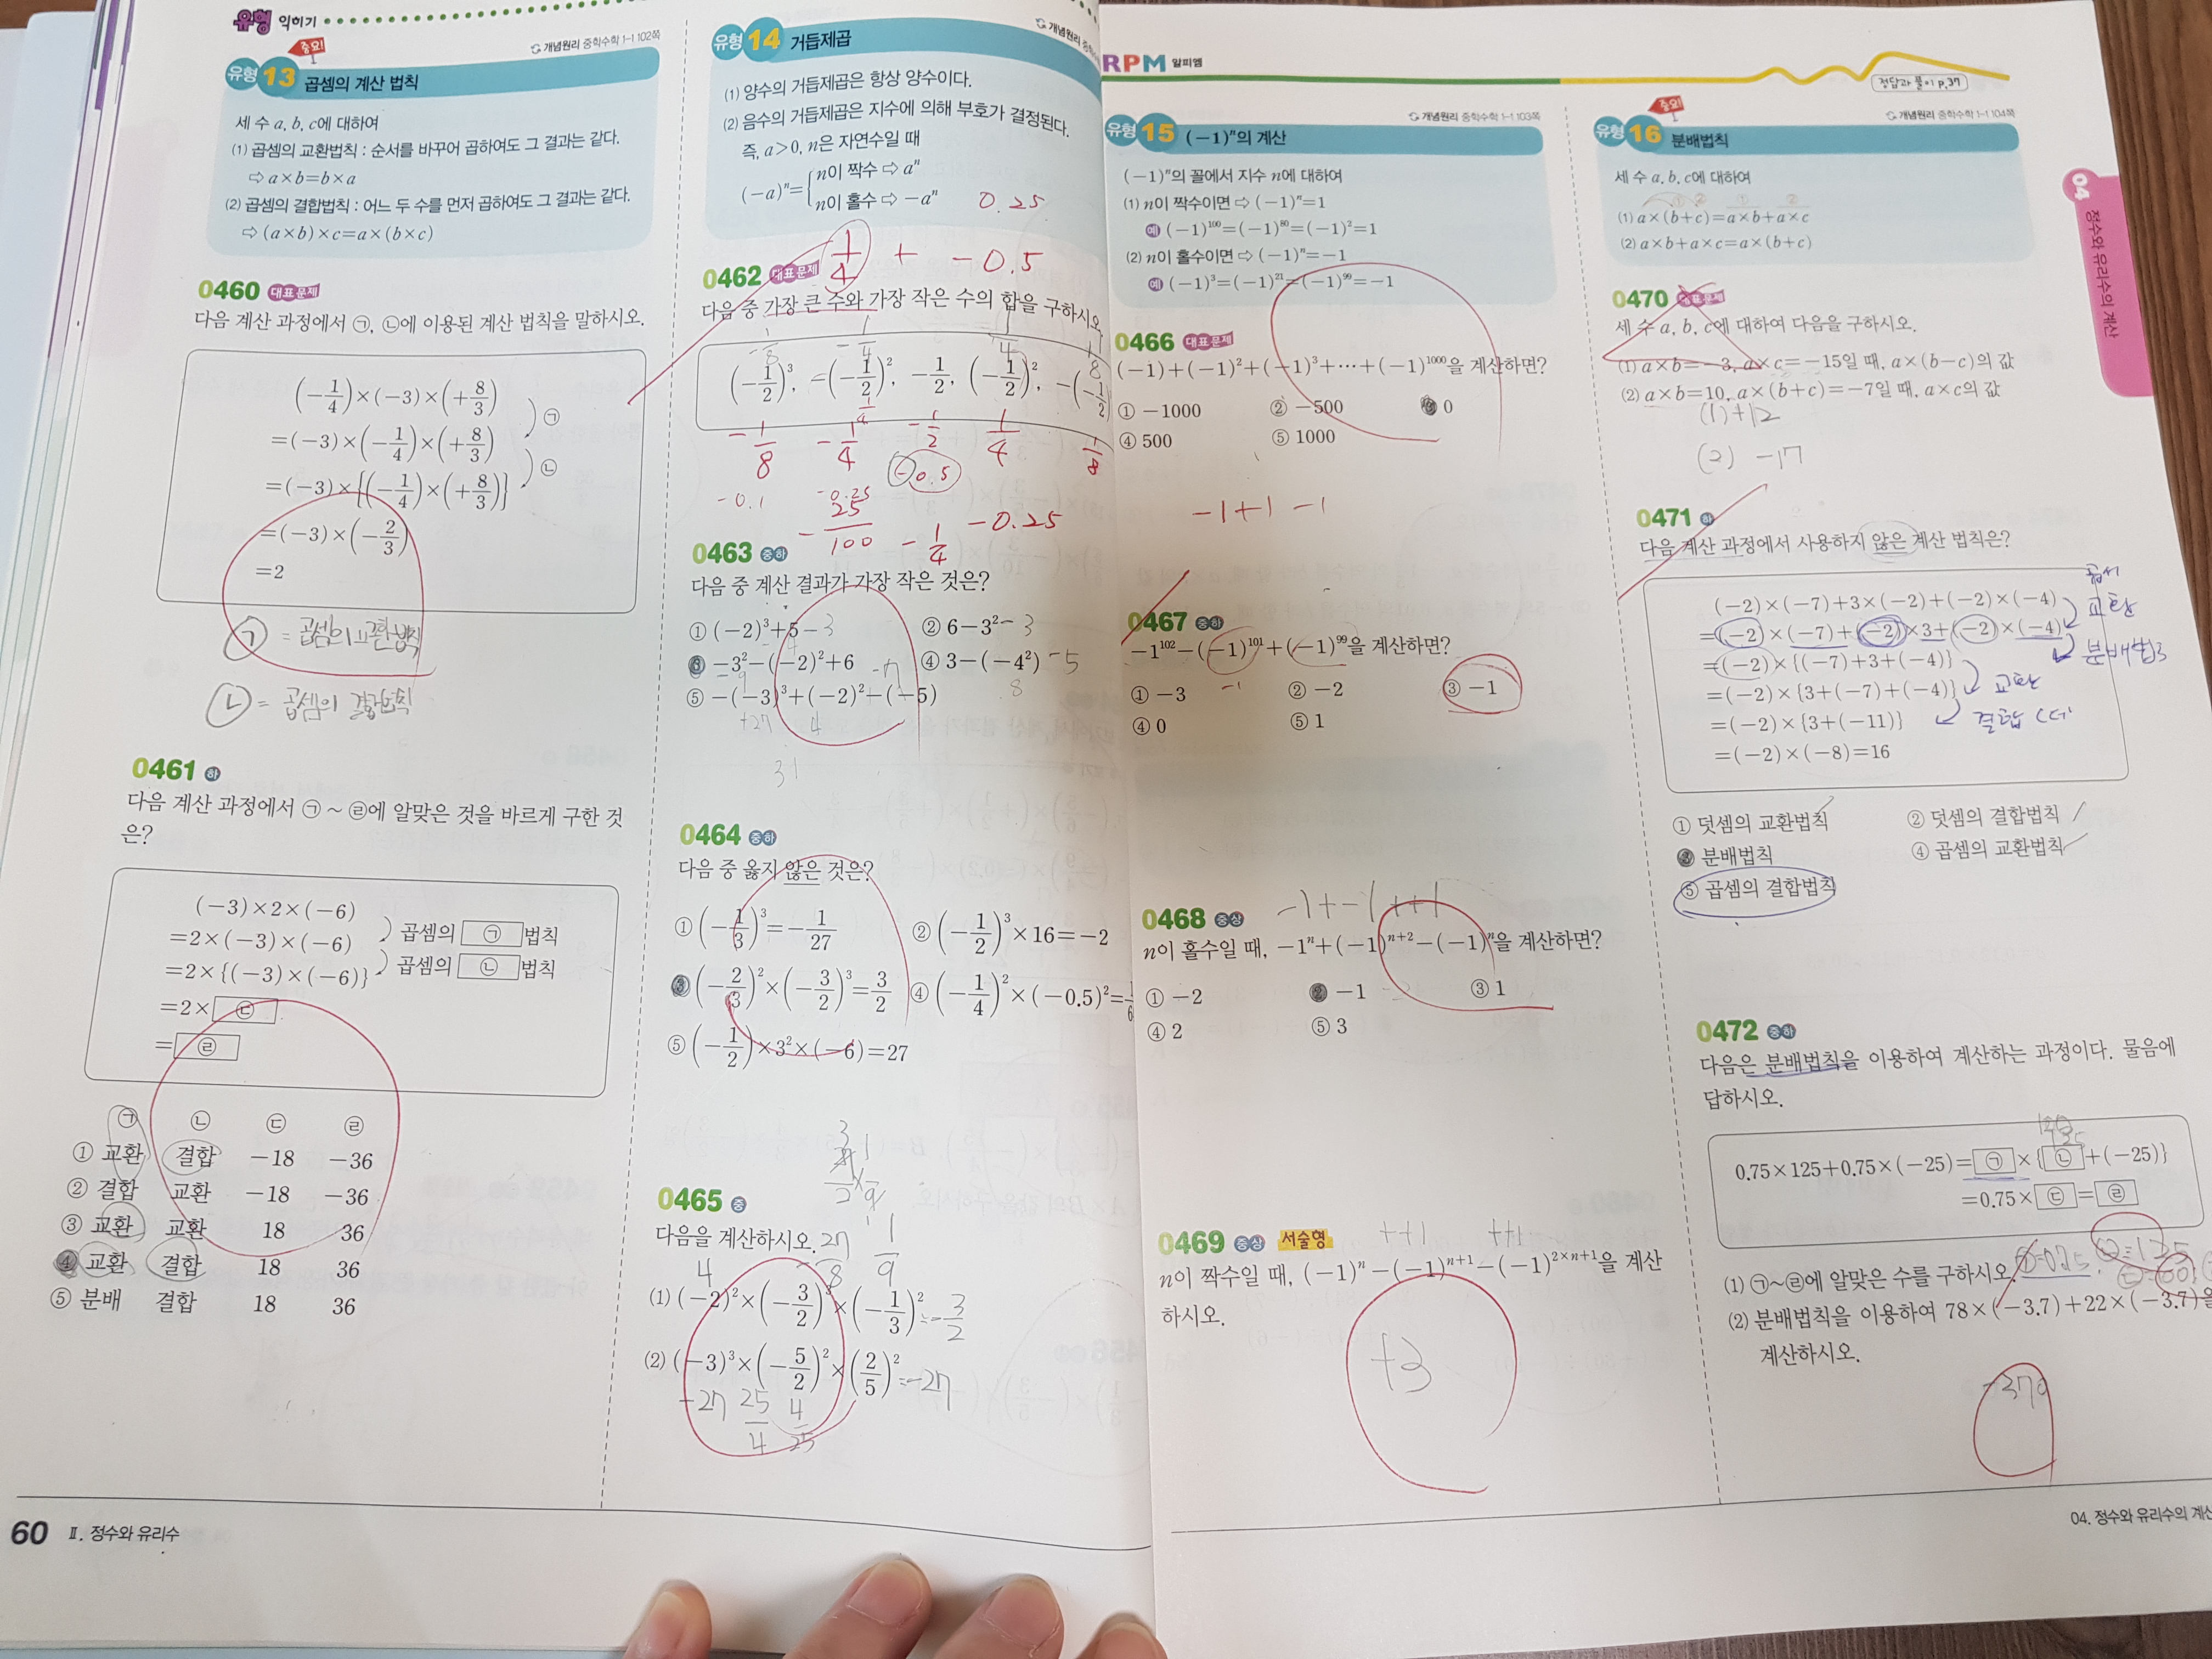 유형 익히기
중요!
개념원리 중학수학 1-1 102쪽
유형 13 곱셈의 계산 법칙
세 수 a, b, c에 대하여
(1) 곱셈의 교환법칙 : 순서를 바꾸어 곱하여도 그 결과는 같다.
⇨ a×b=b×a
(2) 곱셈의 결합법칙 : 어느 두 수를 먼저 곱하여도 그 결과는 같다.
⇨ (a×b)×c=a×(b×c)
0460 대표문제
다음 계산 과정에서 ㉠, ㉡에 이용된 계산 법칙을 말하시오.
(-1/4)×(-3)×(+8/3)
㉠
=(-3)×(-1/4)×(+8/3)
㉡
=(-3)×{(-1/4)×(+8/3)}
=(-3)×(-2/3)
=2
㉠ = 곱셈의 교환법칙
㉡ = 곱셈의 결합법칙
0461 하
다음 계산 과정에서 ㉠ ~ ㉣에 알맞은 것을 바르게 구한 것
은?
(-3)×2×(-6)
곱셈의 ㉠ 법칙
=2×(-3)×(-6)
곱셈의 ㉡ 법칙
=2×{(-3)×(-6)}
=2×㉢
=㉣
㉠ ㉡ ㉢ ㉣
① 교환 결합 -18 -36
② 결합 교환 -18 -36
③ 교환 교환 18 36
④ 교환 결합 18 36
⑤ 분배 결합 18 36
60 Ⅱ. 정수와 유리수
개념원리 중학
유형 14 거듭제곱
(1) 양수의 거듭제곱은 항상 양수이다.
(2) 음수의 거듭제곱은 지수에 의해 부호가 결정된다.
즉, a>0, n은 자연수일 때
(-a)ⁿ={n이 짝수 ⇨ aⁿ
n이 홀수 ⇨ -aⁿ
0.25
1/4 + -0.5
0462 대표문제
다음 중 가장 큰 수와 가장 작은 수의 합을 구하시오.
-1/8 -1/4 1/4 1/8
(-1/2)³, -(-1/2)², -1/2, (-1/2)², -(-1/2)
-1/8 -1/4 -1/2 1/4 1/8
-0.5
-0.1 -0.25
-25/100 -1/4 -0.25
0463 중하
다음 중 계산 결과가 가장 작은 것은?
① (-2)³+5 -3 ② 6-3² -3
③ -3²-(-2)²+6 -7 ④ 3-(-4²) -5
-9 8
⑤ -(-3)³+(-2)²-(-5)
+27 4
31
0464 중하
다음 중 옳지 않은 것은?
① (-1/3)³=-1/27 ② (-1/2)³×16=-2
③ (-2/3)²×(-3/2)³=3/2 ④ (-1/4)²×(-0.5)²=
⑤ (-1/2)×3²×(-6)=27
0465 중
다음을 계산하시오.
4 -27/8 1/9
(1) (-2)²×(-3/2)³×(-1/3)² = -3/2
(2) (-3)³×(-5/2)²×(2/5)² = -27
-27 25/4 4/25
RPM 알피엠
정답과 풀이 p.37
개념원리 중학수학 1-1 103쪽
유형 15 (-1)ⁿ의 계산
(-1)ⁿ의 꼴에서 지수 n에 대하여
(1) n이 짝수이면 ⇨ (-1)ⁿ=1
예 (-1)¹⁰⁰=(-1)⁸⁰=(-1)²=1
(2) n이 홀수이면 ⇨ (-1)ⁿ=-1
예 (-1)³=(-1)²¹=(-1)⁹⁹=-1
0466 대표문제
(-1)+(-1)²+(-1)³+⋯+(-1)¹⁰⁰⁰을 계산하면?
① -1000 ② -500 ③ 0
④ 500 ⑤ 1000
-1+1 -1
0467 중하
-1¹⁰²-(-1)¹⁰¹+(-1)⁹⁹을 계산하면?
-1
① -3 ② -2 ③ -1
④ 0 ⑤ 1
-1+-1++1
0468 중상
n이 홀수일 때, -1ⁿ+(-1)ⁿ⁺²-(-1)ⁿ을 계산하면?
① -2 ② -1 ③ 1
④ 2 ⑤ 3
0469 중상 서술형
++1 ++1
n이 짝수일 때, (-1)ⁿ-(-1)ⁿ⁺¹-(-1)²ˣⁿ⁺¹을 계산
하시오.
+3
중요!
개념원리 중학수학 1-1 104쪽
유형 16 분배법칙
세 수 a, b, c에 대하여
① ② ① ②
(1) a×(b+c)=a×b+a×c
(2) a×b+a×c=a×(b+c)
0470 대표문제
세 수 a, b, c에 대하여 다음을 구하시오.
(1) a×b=-3, a×c=-15일 때, a×(b-c)의 값
(2) a×b=10, a×(b+c)=-7일 때, a×c의 값
(1) +12
(2) -17
0471 하
다음 계산 과정에서 사용하지 않은 계산 법칙은?
(-2)×(-7)+3×(-2)+(-2)×(-4)
교환
=(-2)×(-7)+(-2)×3+(-2)×(-4)
분배법칙
=(-2)×{(-7)+3+(-4)}
교환
=(-2)×{3+(-7)+(-4)}
결합
=(-2)×{3+(-11)}
=(-2)×(-8)=16
① 덧셈의 교환법칙 ② 덧셈의 결합법칙
③ 분배법칙 ④ 곱셈의 교환법칙
⑤ 곱셈의 결합법칙
0472 중하
다음은 분배법칙을 이용하여 계산하는 과정이다. 물음에
답하시오.
0.75×125+0.75×(-25)=㉠×{㉡+(-25)}
=0.75×㉢=㉣
(1) ㉠~㉣에 알맞은 수를 구하시오.
(2) 분배법칙을 이용하여 78×(-3.7)+22×(-3.7)을
계산하시오.
-370
04 정수와 유리수의 계산
04. 정수와 유리수의 계산